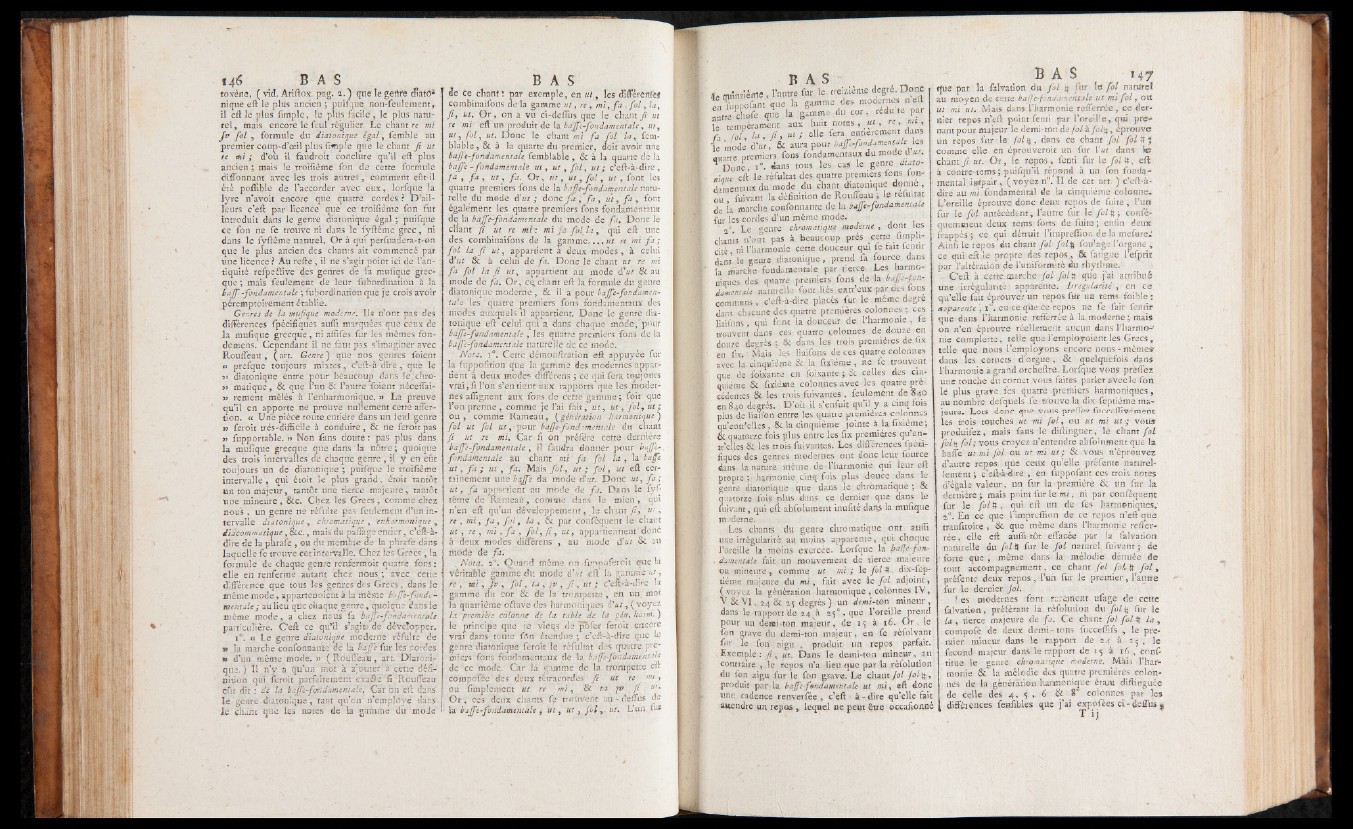 146 B A S
toxène, ( vid. Ariſtox. pag. 2. ) que le genre diato-
nique eſt le plus ancien ; puiſque non-ſeulement,
il eſt le plus ſimple, le plus facile, le plus natu-
rel, mais encore le ſeul régulier. Le chant re mi
fa ſol, formule du diatonique égal, ſemble au
premier coup-d'œil plus ſimple que le chant ſi ut
re mi ; d'où il faudroit conclure qu'il eſt plus
ancien ; mais le troiſième ſon de cette formule
diſſonnant avec les trois autres, comment eût-il
été poſſible de l'accorder avec eux, lorſque la
lyre n'avoit encore que quatre cordes ? D'ail-
leurs c'eſt par licence que ce troiſième ſon fut
introduit dans le genre diatonique égal ; puiſque
ce ſon ne ſe trouve ni dans le ſyſtême grec, ni
dans le ſyſtême naturel. Or à qui perſuadera-t-on
que le plus ancien des chants ait commencé par
une licence ? Au reſte, il ne s'agit point ici de l'an-
tiquité reſpective des genres de la muſique grec-
que ; mais ſeulement de leur ſubordination à la
baſſe-fondamentale ; ſubordination que je crois avoir
péremptoirement établie.
Genres de la muſique moderne. Ils n'ont pas des
différences ſpécifiques auſſi marquées que ceux de
la muſique grecque, ni aſſiſes ſur les mêmes fon-
demens. Cependant il ne faut pas s'imaginer avec
Rouſſeau, ( art. Genre ) que nos genres ſoient
« preſque toujours mixtes, c'eſt-à-dire, que le
» diatonique entre pour beaucoup dans le chro-
» matique, & que l'un & l'autre ſoient néceſſai-
» rement mêlés à l'enharmonique. » La preuve
qu'il en apporte ne prouve nullement cette aſſer-
tion. « Une pièce toute entière dans un ſeul genre
» ſeroit très-difficile à conduire, & ne ſeroit pas
» ſupportable. » Non ſans doute : pas plus dans
la muſique grecque que dans la nôtre ; quoique
des trois intervalles de chaque genre, il y en eût
toujours un de diatonique ; puiſque le troiſième
intervalle, qui étoit le plus grand, étoit tantôt
un ton majeur, tantôt une tierce majeure, tantôt
une mineure, &c. Chez les Grecs, comme chez
nous, un genre ne réſulte pas ſeulement d'un in-
tervalle diatonique, chromatique, enharmonique,
diacommatique, &c., mais du paſſage entier, c'eſt-à-
dire de la phraſe, ou du membre de la phraſe dans
laquelle ſe trouve cet intervalle. Chez les Grecs, la
formule de chaque genre renfermoit quatre ſons :
elle en renferme autant chez nous ; avec cette
différence que tous les genres des Grecs, dans le
même mode, appartenoient à la même baſſe-fonda-
mentale ; au lieu que chaque genre, quoique dans le
même mode, a chez nous ſa baſſe-fondamentale
particulière. C'eſt ce qu'il s'agit de développer.
1°. « Le genre diatonique moderne réſulte de
» la marche conſonnante de la baſſe ſur les cordes
» d'un même mode. » ( Rouſſeau, art. Diatoni-
que. ) Il n'y a qu'un mot à ajouter à cette défi-
nition qui ſeroit parfaitement exacte ſi Rouſſeau
eût dit : de la baſſe-fondamentale. Car on eſt dans
le genre diatonique, tant qu'on n'employe dans
le chant que les notes de la gamme du mode
B A S
de ce chant : par exemple, en ut, les différentes
combinaiſons de la gamme ut, re, mi, fa, ſol, la,
ſi, ut. Or, on a vu ci-deſſus que le chant ſi ut
re mi eſt un produit de la baſſe-fondamentale, ut,
ut, ſol, ut. Donc le chant mi fa ſol la, ſem-
blable, & à la quarte du premier, doit avoir une
baſſe-fondamentale ſemblable, & à la quarte de la
baſſe-fondamentale ut, ut, ſol, ut ; c'eſt-à-dire,
fa, fa, ut, fa. Or, ut, ut, ſol, ut, ſont les
quatre premiers ſons de la baſſe-fondamentale natu-
relle du mode d'ut ; donc fa, fa, ut, fa, ſont
également les quatre premiers ſons fondamentaux
de la baſſe-fondamentale du mode de fa. Donc le
chant ſi ut re mi : mi fa ſol la, qui eſt une
des combinaiſons de la gamme.... ut re mi fa ;
ſol la ſi ut, appartient à deux modes, à celui
d'ut & à celui de fa. Donc le chant ut re mi
fa ſol la ſi ut, appartient au mode d'ut & au
mode de fa. Or, ce chant eſt la formule du genre
diatonique moderne, & il a pour baſſe-fondamen-
tale les quatre premiers ſons fondamentaux des
modes auxquels il appartient. Donc le genre dia-
tonique eſt celui qui a dans chaque mode, pour
baſſe-fondamentale, les quatre premiers ſons de la
baſſe-fondamentale naturelle de ce mode.
Nota. 1°. Cette démonſtration eſt appuyée ſur
la ſuppoſition que la gamme des modernes appar-
tient à deux modes différens ; ce qui ſera toujours
vrai, ſi l'on s'en tient aux rapports que les moder-
nes aſſignent aux ſons de cette gamme ; ſoit que
l'on prenne, comme je l'ai fait, ut, ut, ſol, ut ;
ou, comme Rameau, ( génération harmonique )
ſol ut ſol ut, pour baſſe-fondamentale du chant
ſi ut re mi. Car ſi on préfère cette dernière
baſſe-fondamentale, il faudra donner pour baſſe-
fondamentale au chant mi fa ſol la, la baſſe
ut, fa ; ut, fa. Mais ſol, ut ; ſol, ut eſt cer-
tainement une baſſe du mode d'ut. Donc ut, fa ;
ut, fa appartient au mode de fa. Dans le ſyſ-
tême de Rameau, comme dans le mien, qui
n'en eſt qu'un développement, le chant ſi, ut,
re, mi, fa, ſol, la, & par conſéquent le chant
ut, re, mi, fa, ſol, ſi, ut, appartiennent donc
à deux modes différens, au mode d'ut & au
mode de fa.
Nota. 2°. Quand même on ſuppoſeroit que la
véritable gamme du mode d'ut eſt la gamme ut,
re, mi, fv, ſol, la, jv, ſi, ut ; c'eſt-à-dire la
gamme du cor & de la trompette, en un mot
la quatrième octave des harmoniques d'ut, ( voyez
la première colonne de la table de la gén. harm. )
le principe que je viens de poſer ſeroit encore
vrai dans toute ſon étendue ; c'eſt-à-dire que le
genre diatonique ſeroit le réſultat des quatre pre-
miers ſons fondamentaux de la baſſe-fondamentale
de ce mode. Car la gamme de la trompette eſt
compoſée des deux tétracordes ſi ut re mi,
ou ſimplement ut re mi, & la jv ſi ut.
Or, ces deux chants ſe trouvent au-deſſus de
la baſſe-fondamentale, ut, ut, ſol, ut. L'un ſur
B A S
le quinzième, l'autre ſur le treizième degré. Donc
en ſuppoſant que la gamme des modernes n'eſt
autre choſe que la gamme du cor, réduite par
le tempérament aux huit notes, ut, re, mi,
fa, ſol, la, ſi, ut ; elle ſera entièrement dans
le mode d'ut, & aura pour baſſe-fondamentale les
quatre premiers ſons fondamentaux du mode d'ut.
Donc, 1°. dans tous les cas le genre diato-
nique eſt le réſultat des quatre premiers ſons fon-
damentaux du mode du chant diatonique donné,
ou, ſuivant la définition de Rouſſeau, le réſultat
de la marche conſonnante de la baſſe-fondamentale
ſur les cordes d'un même mode.
2°. Le genre chromatique moderne, dont les
chants n'ont pas à beaucoup près cette ſimpli-
cité, ni l'harmonie cette douceur qui ſe fait ſentir
dans le genre diatonique, prend ſa ſource dans
la marche fondamentale par tierce. Les harmo-
niques des quatre premiers ſons de la baſſe-fon-
damentale naturelle ſont liés entr'eux par des ſons
communs, c'eſt-à-dire placés ſur le même degré
dans chacune des quatre premières colonnes ; ces
liaiſons, qui font la douceur de l'harmonie, ſe
trouvent dans ces quatre colonnes de douze en
douze degrés ; & dans les trois premières de ſix
en ſix. Mais les liaiſons de ces quatre colonnes
avec la cinquième & la ſixième, ne ſe trouvent
que de ſoixante en ſoixante ; & celles des cin-
quième & ſixième colonnes avec les quatre pré-
cédentes & les trois ſuivantes, ſeulement de 840
en 840 degrés. D'où il s'enſuit qu'il y a cinq fois
plus de liaiſon entre les quatre premières colonnes
qu'entr'elles, & la cinquième jointe à la ſixième ;
& quatorze fois plus entre les ſix premières qu'en-
tr'elles & les trois ſuivantes. Les différences ſpéci-
fiques des genres modernes ont donc leur ſource
dans la nature même de l'harmonie qui leur eſt
propre ; harmonie cinq fois plus douce dans le
genre diatonique que dans le chromatique ; &
quatorze fois plus dans ce dernier que dans le
ſuivant, qui eſt abſolument inuſité dans la muſique
moderne.
Les chants du genre chromatique ont auſſi
une irrégularité au moins apparente, qui choque
l'oreille la moins exercée. Lorſque la baſſe-fon-
damentale fait un mouvement de tierce majeure
ou mineure, comme ut mi ; le ſol ♮, dix-ſep-
tième majeure du mi, fait avec le ſol adjoint,
( voyez la génération harmonique, colonnes IV,
V & VI. 24 & 25 degrés ) un demi-ton mineur,
dans le rapport de 24 à 25, que l'oreille prend
pour un demi-ton majeur, de 15 à 16. Or, le
ſon grave du demi-ton majeur, en ſe réſolvant
ſur le ſon aigu, produit un repos parfait.
Exemple : ſi, ut. Dans le demi-ton mineur, au
contraire, le repos n'a lieu que par la réſolution
du ſon aigu ſur le ſon grave. Le chant ſol ſol ♮,
produit par la baſſe-fondamentale ut mi, eſt donc
une cadence renverſée, c'eſt-à-dire qu'elle fait
attendre un repos, lequel ne peut être occaſionné
B A S 147
que par la ſalvation du ſol ♮ ſur le ſol naturel
au moyen de cette baſſe-fondamentale ut mi ſol, ou
ut mi ut. Mais dans l'harmonie reſſerrée, ce der-
nier repos n'eſt point ſenti par l'oreille, qui pre-
nant pour majeur le demi-ton de ſol à ſol ♮, éprouve
un repos ſur le ſol ♮, dans ce chant ſol ſol ♮ ;
comme elle en éprouveroit un ſur l'ut dans le
chant ſi ut. Or, le repos, ſenti ſur le ſol ♮, eſt
à contre-tems ; puiſqu'il répond à un ſon fonda-
mental impair, ( voyez n°. II de cet art. ) c'eſt-à-
dire au mi fondamental de la cinquième colonne.
L'oreille éprouve donc deux repos de ſuite, l'un
ſur le ſol antécédent, l'autre ſur le ſol ♮ ; conſé-
quemment deux tems forts de ſuite ; enfin deux
frappés ; ce qui détruit l'impreſſion de la meſure.
Ainſi le repos du chant ſol ſol ♮ ſoulage l'organe,
ce qui eſt le propre des repos, & fatigue l'eſprit
par l'altération de l'uniformité du rhythme.
C'eſt à cette marche ſol ſol ♮ que j'ai attribué
une irrégularité apparente. Irrégularité, en ce
qu'elle fait éprouver un repos ſur un tems foible :
apparente, 1°. en ce que ce repos ne ſe fait ſentir
que dans l'harmonie reſſerrée à la moderne ; mais
on n'en éprouve réellement aucun dans l'harmo-
nie complette, telle que l'employoient les Grecs,
telle que nous l'employons encore nous-mêmes
dans les cornets d'orgue, & quelquefois dans
l'harmonie à grand orcheſtre. Lorſque vous preſſez
une touche du cornet vous faites parler avec le ſon
le plus grave ſes quatre premiers harmoniques,
au nombre deſquels ſe trouve la dix-ſeptième ma-
jeure. Lors donc que vous preſſez ſucceſſivement
les trois touches ut mi ſol, ou ut mi ut ; vous
produiſez, mais ſans le diſtinguer, le chant ſol
ſol ♮ ſol ; vous croyez n'entendre abſolument que la
baſſe ut mi ſol ou ut mi ut ; & vous n'éprouvez
d'autre repos que ceux qu'elle préſente naturel-
lement ; c'eſt-à-dire, en ſuppoſant ces trois notes
d'égale valeur, un ſur la première & un ſur la
dernière ; mais point ſur le mi, ni par conſéquent
ſur le ſol ♮, qui eſt un de ſes harmoniques.
2°. En ce que l'impreſſion de ce repos n'eſt que
tranſitoire, & que même dans l'harmonie reſſer-
rée, elle eſt auſſi-tôt effacée par la ſalvation
naturelle du ſol ♮ ſur le ſol naturel ſuivant ; de
ſorte que, même dans la mélodie dénuée de
tout accompagnement, ce chant ſol ſol ♮ ſol,
préſente deux repos, l'un ſur le premier, l'autre
ſur le dernier ſol.
Les modernes font rarement uſage de cette
ſalvation, préférant la réſolution du ſol ♮ ſur le
la, tierce majeure de fa. Ce chant ſol ſol ♮ la,
compoſé de deux demi-tons ſucceſſifs, le pre-
mier mineur dans le rapport de 24 à 25, le
ſecond majeur dans le rapport de 15 à 16, conſ-
titue le genre chromatique moderne. Mais l'har-
monie & la mélodie des quatre premières colon-
nes de la génération harmonique étant diſtinguée
de celle des 4, 5, 6 & 8e colonnes par les
différences ſenſibles que j'ai expoſées ci-deſſus,
T ij